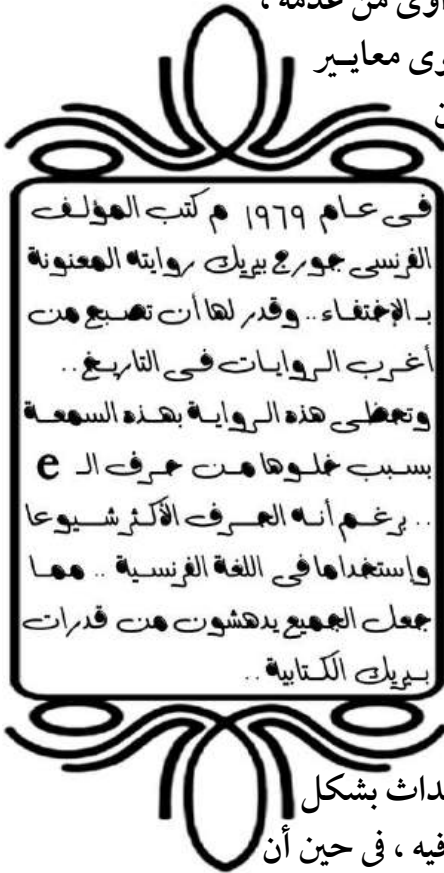 من عدمه ،
معايـير
فـى عـام ١٩٦٩ م كتب المؤلـف
الفرنسى جورج بيريك روايته المعنونة
بـ الإختفـاء .. وقدر لها أن تصبح من
أغـرب الـروايـات فـى التاريـخ ..
وتحظـى هذه الـروايـة بهـذه السمعـة
بسبـب خلـوها مـن حـرف الـ e
.. برغـم أنـه الحـرف الأكـثر شـيوعا
وإستخداما فى اللغة الفرنسـية .. ممـا
جعل الجميع يدهشون من قدرات
بـيريك الكـتابية ..
بشكل
فيه ، فى حين أن